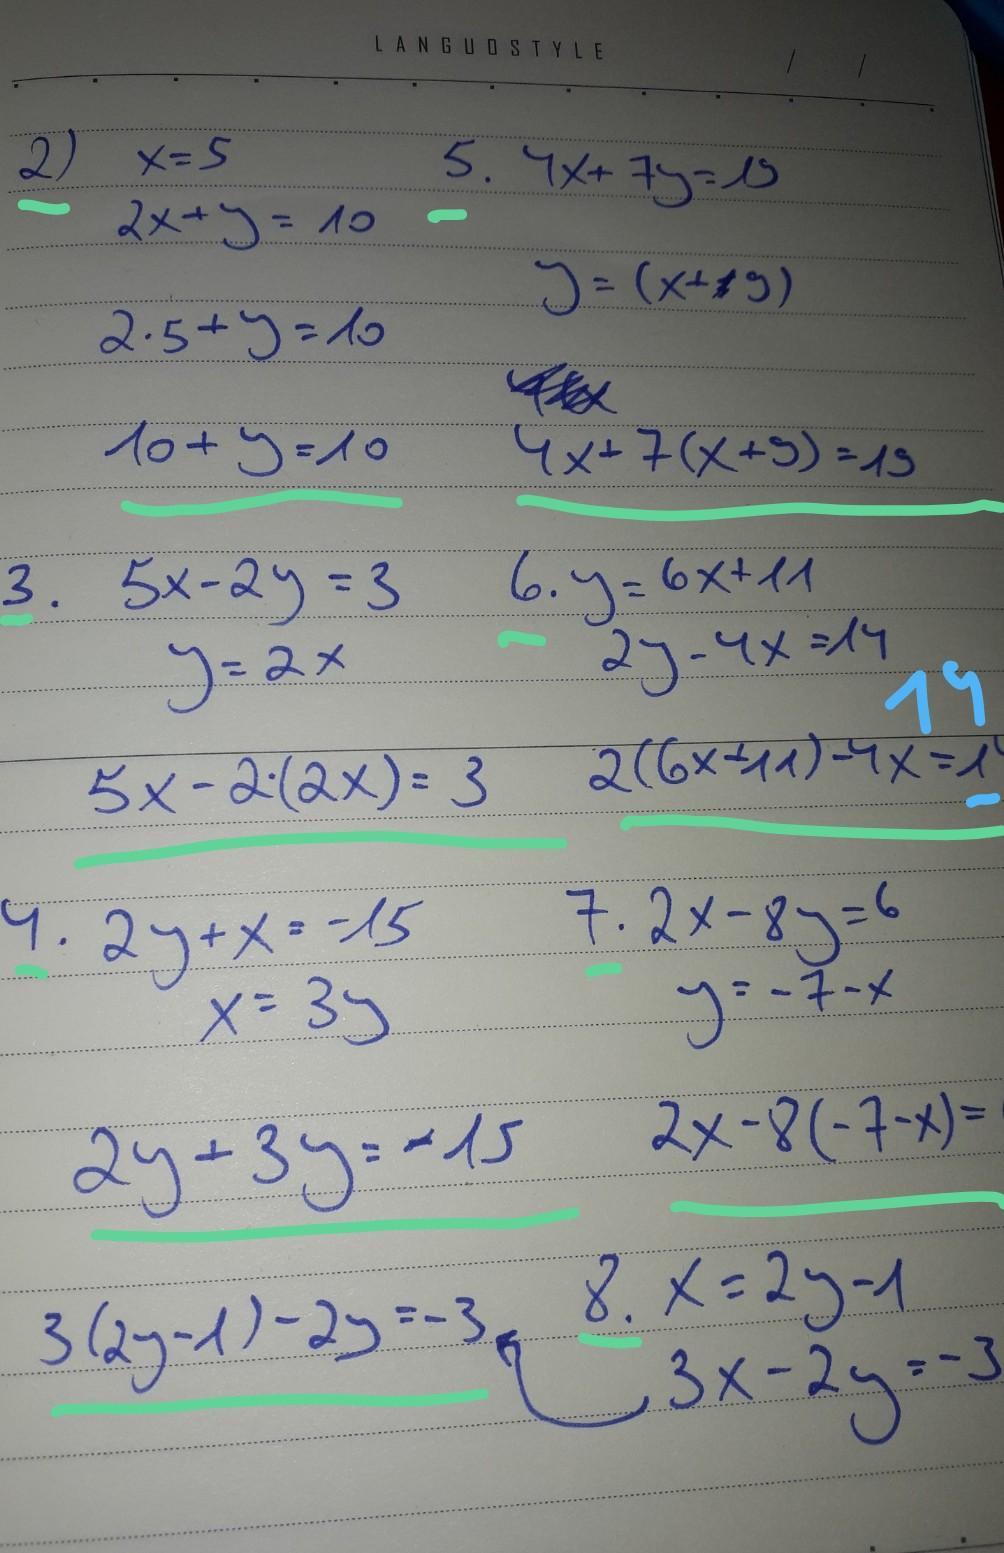 LANGUOSTYLE
/ /
2) x=5
2x+y=10
2·5+y=10
10+y=10
3. 5x-2y=3
y=2x
5x-2·(2x)=3
4. 2y+x=-15
x=3y
2y+3y=-15
3(2y-1)-2y=-3
5. 4x+7y=19
y=(x+9)
4x+7(x+9)=19
6. y=6x+11
2y-4x=14
14
2(6x+11)-4x=14
7. 2x-8y=6
y=-7-x
2x-8(-7-x)=
8. x=2y-1
3x-2y=-3